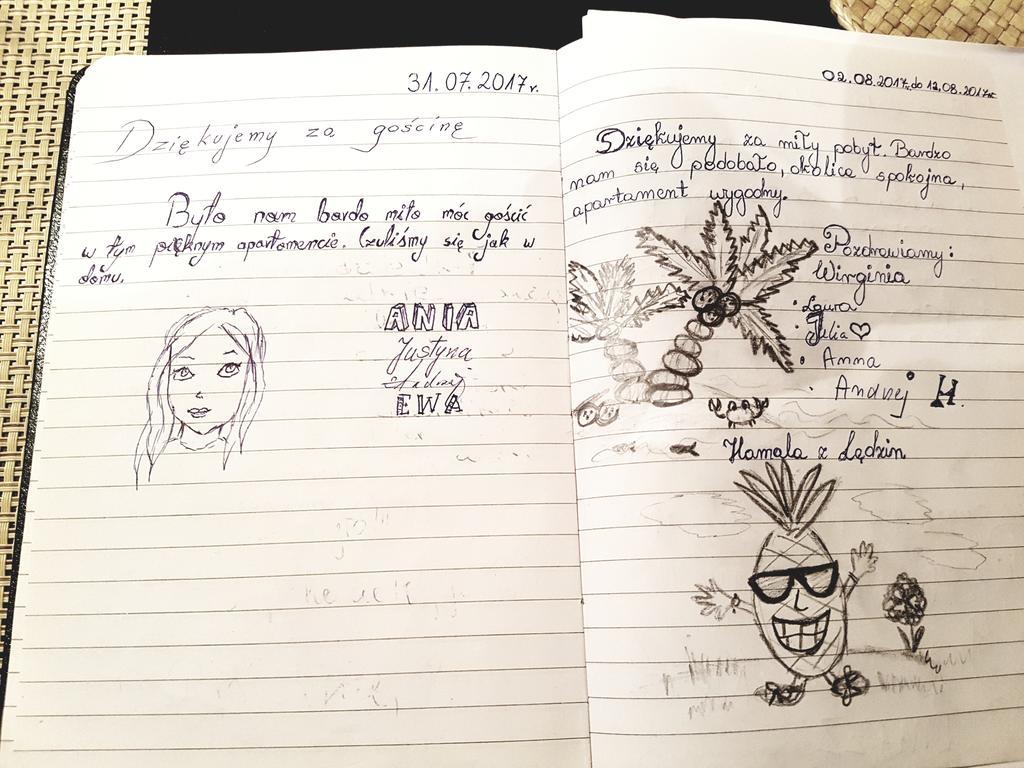 31.07.2017r.
Dziękujemy za gościnę
Było nam bardo miło móc gościć
w tym pięknym apartamencie. Czuliśmy się jak w
domu.
ANIA
Justyna
Andrzej
EWA
02.08.2017r. do 12.08.2017r.
Dziękujemy za miły pobyt. Bardzo
nam się podobało, okolica spokojna,
apartament wygodny.
Pozdrowiamy:
Wirginia
Laura
Julia ♡
Anna
Andrzej H.
Hamala z Lędzin